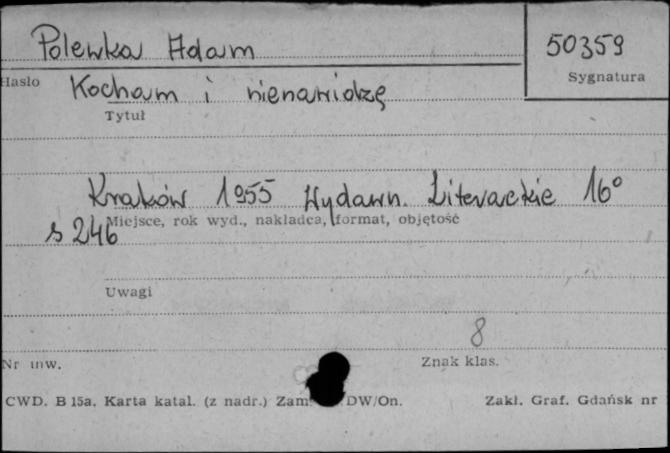 Polewka Adam
50359
Hasło
Sygnatura
Kocham i nienawidzę
Tytuł
Kraków 1955 Wydawn. Literackie 16°
Miejsce, rok wyd., nakładca, format, objętość
s 246
Uwagi
8
Nr inw.
Znak klas.
CWD. B 15a. Karta katal. (z nadr.) Zam. DW/On.
Zakł. Graf. Gdańsk nr